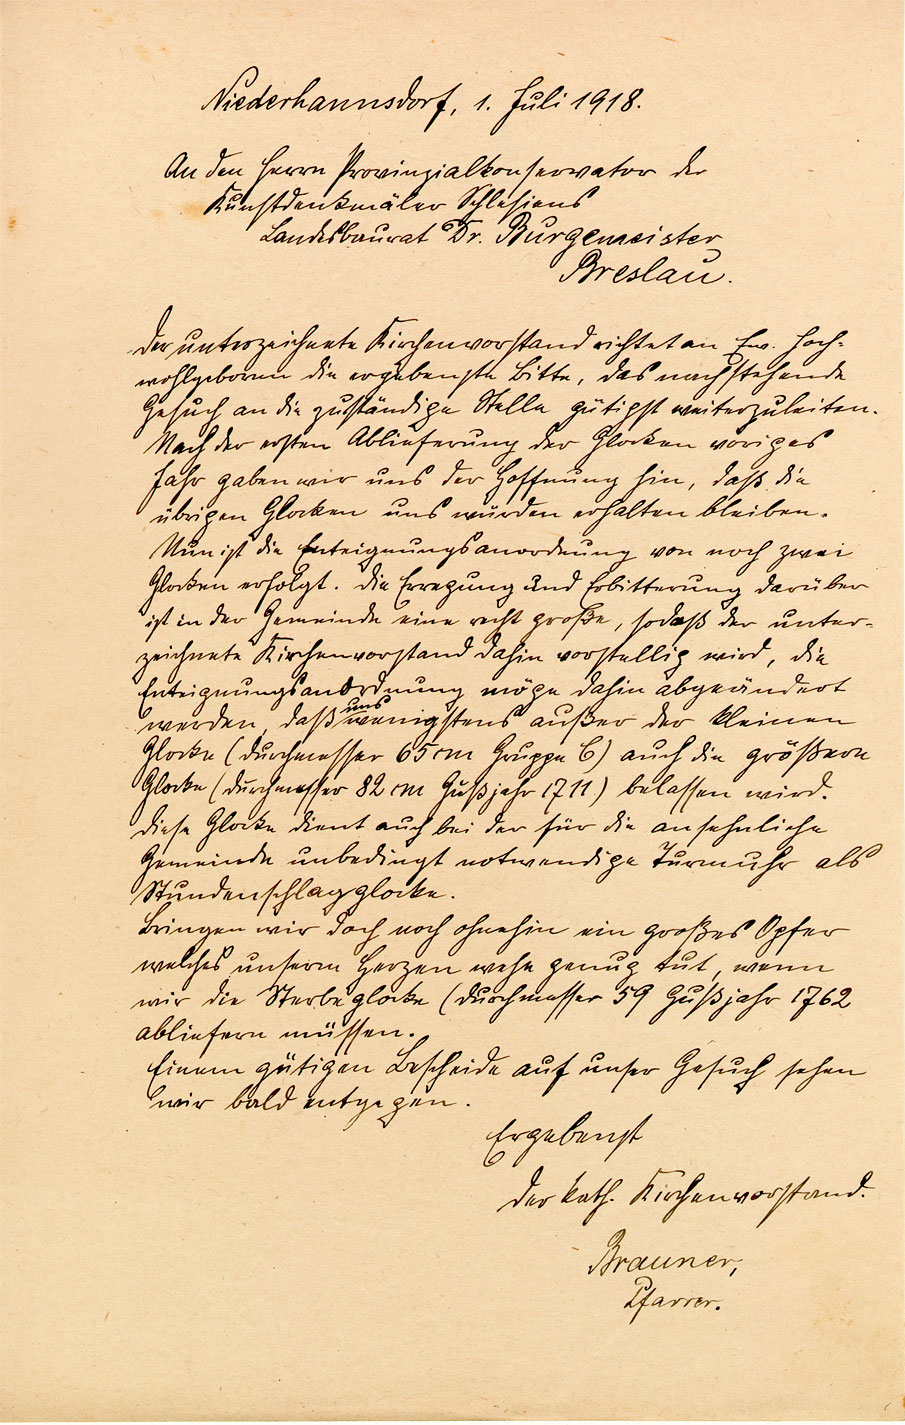 Niederhannsdorf, 1. Juli 1918.
An den Herrn Provinzialkonservator der
Kunstdenkmäler Schlesiens
Landesbaurat Dr. Burgemeister
Breslau.
Der unterzeichnete Kirchenvorstand richtet an Ew. Hoch-
wohlgeboren die ergebenste Bitte, das nachstehende
Gesuch an die zuständige Stelle gütigst weiterzuleiten.
Nach der ersten Ablieferung der Glocken voriges
Jahr gaben wir uns der Hoffnung hin, daß die
übrigen Glocken uns würden erhalten bleiben.
Nun ist die Enteignungsanordnung von noch zwei
Glocken erfolgt. Die Erregung und Erbitterung darüber
ist in der Gemeinde eine recht große, sodaß der unter-
zeichnete Kirchenvorstand dahin vorstellig wird, die
Enteignungsanordnung möge dahin abgeändert
werden, daß uns wenigstens außer der kleinen
Glocke (Durchmesser 65 cm Gruppe C) auch die größere
Glocke (Durchmesser 82 cm Gußjahr 1711) belassen wird.
Diese Glocke dient auch bei der für die ansehnliche
Gemeinde unbedingt notwendige Turmuhr als
Stundenschlagglocke.
Bringen wir doch noch ohnehin ein großes Opfer
welches unserm Herzen wehe genug tut, wenn
wir die Sterbeglocke (Durchmesser 59 Gußjahr 1762
abliefern müssen.
Einem gütigen Bescheide auf unser Gesuch sehen
wir bald entgegen.
Ergebenst
Der kath. Kirchenvorstand.
Brauner,
Pfarrer.